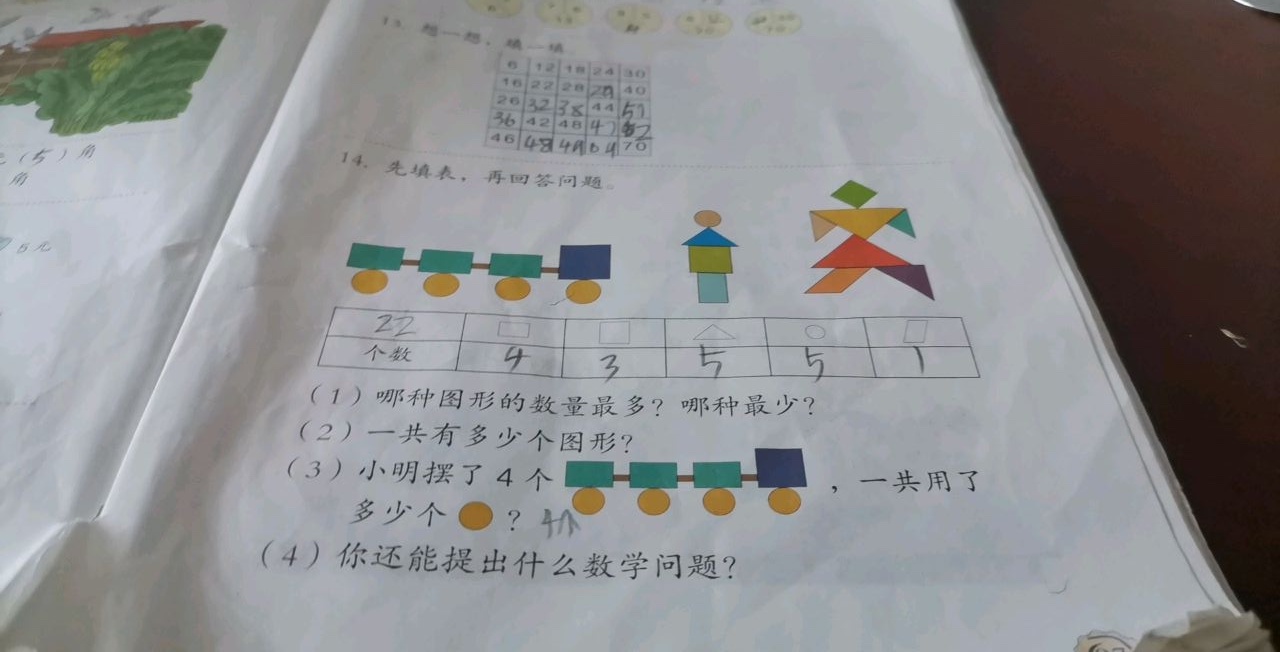 元（5）角
角
5元
13. 想一想，填一填
6 12 18 24 30
16 22 28 40
26 32 38 44
36 42 48
46 70
14. 先填表，再回答问题。
22
个数 4 3 5 5 1
（1）哪种图形的数量最多？哪种最少？
（2）一共有多少个图形？
（3）小明摆了 4 个 ，一共用了
多少个 ？ 4个
（4）你还能提出什么数学问题？